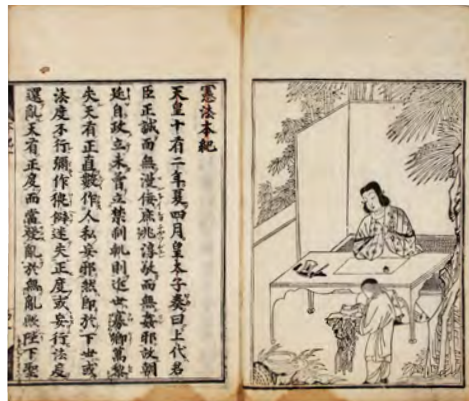 憲法本紀
天皇十有二年夏四月皇太子奏曰上代名
臣正誠而無漫庶淳故而無姦邪故朝
廷自政立未曽立禁制軌則近世寡卿萬黎
失天有正直數作人私妄邪然即於下世或
法度不行彌作僻迷失正度或妄行法度
還亂天有正度而當發亂於無亂陛下聖